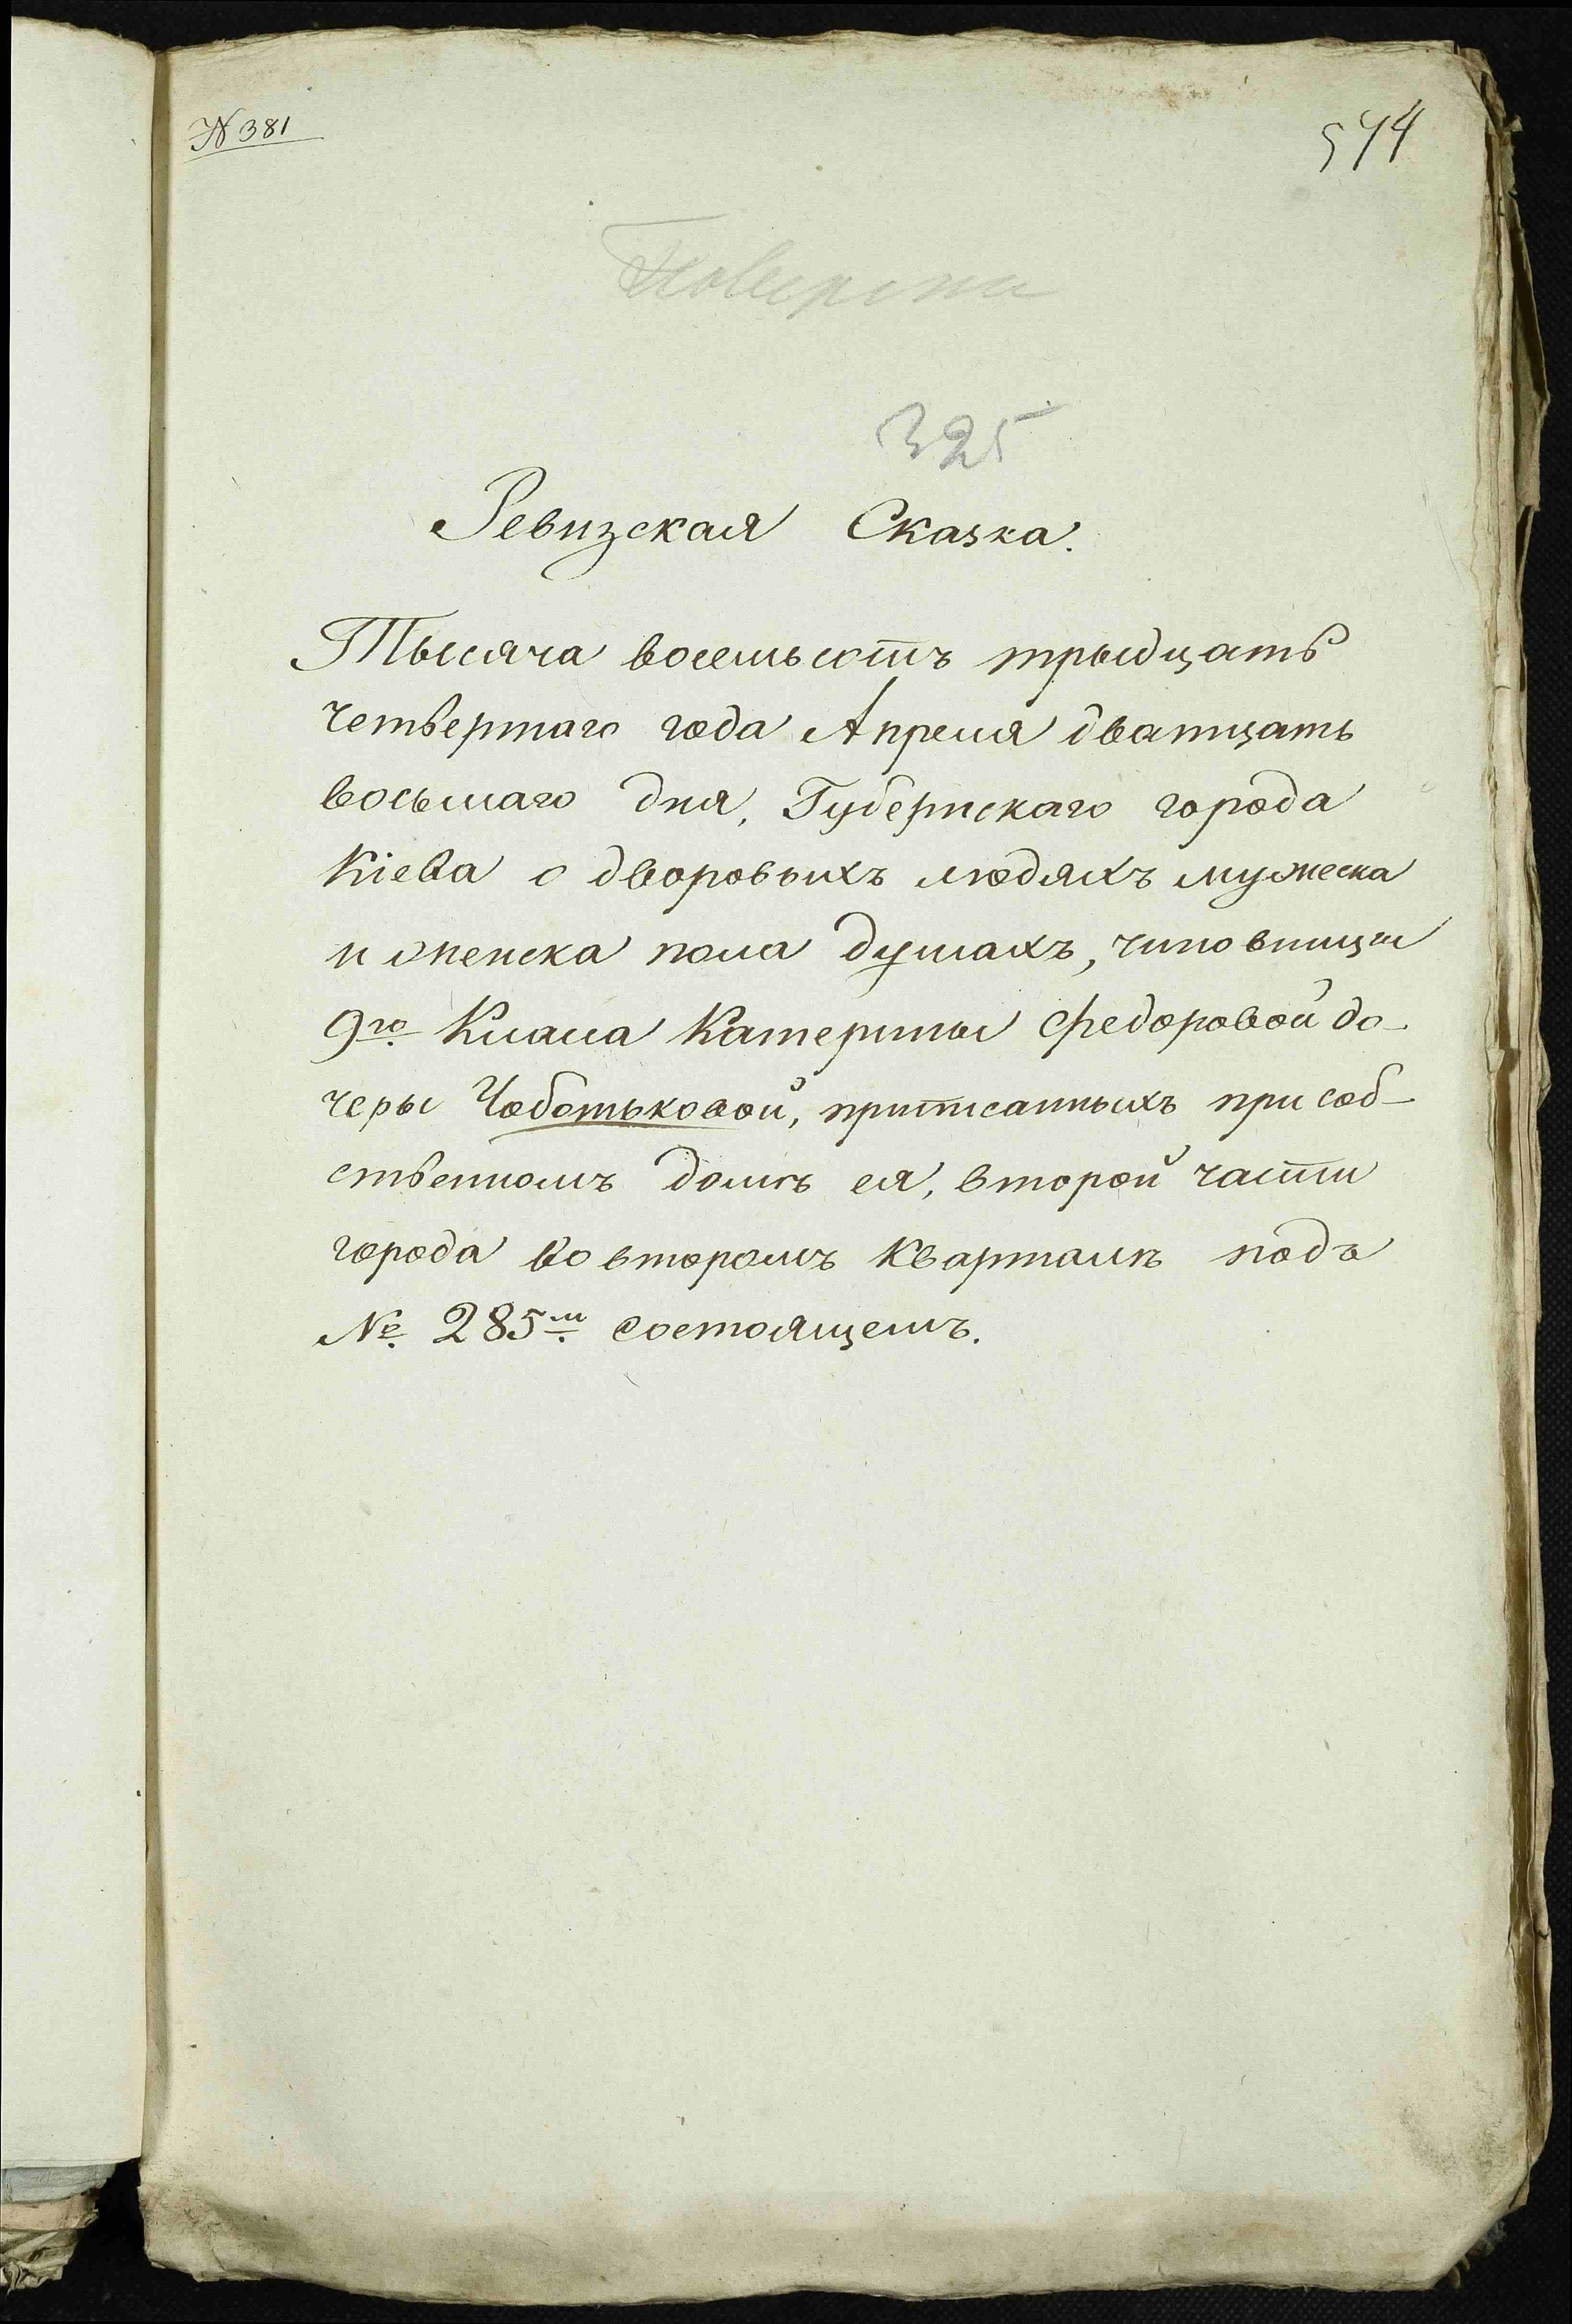 № 381
544
Поверена
325
Ревизская Сказка.
Тысяча восемьсотъ трыдцать
четвертаго года Апреля дватцать
восьмаго дня, Губернскаго города
Кіева о дворовыхъ людяхъ мужеска
и женска пола душахъ, чиновницы
9го Класса Катерины Федоровой до-
черы Чоботьковой, приписанныхъ при соб-
ственномъ домѣ ея, второй части
города во второмъ Кварталѣ подъ
№ 285м состоящемъ.